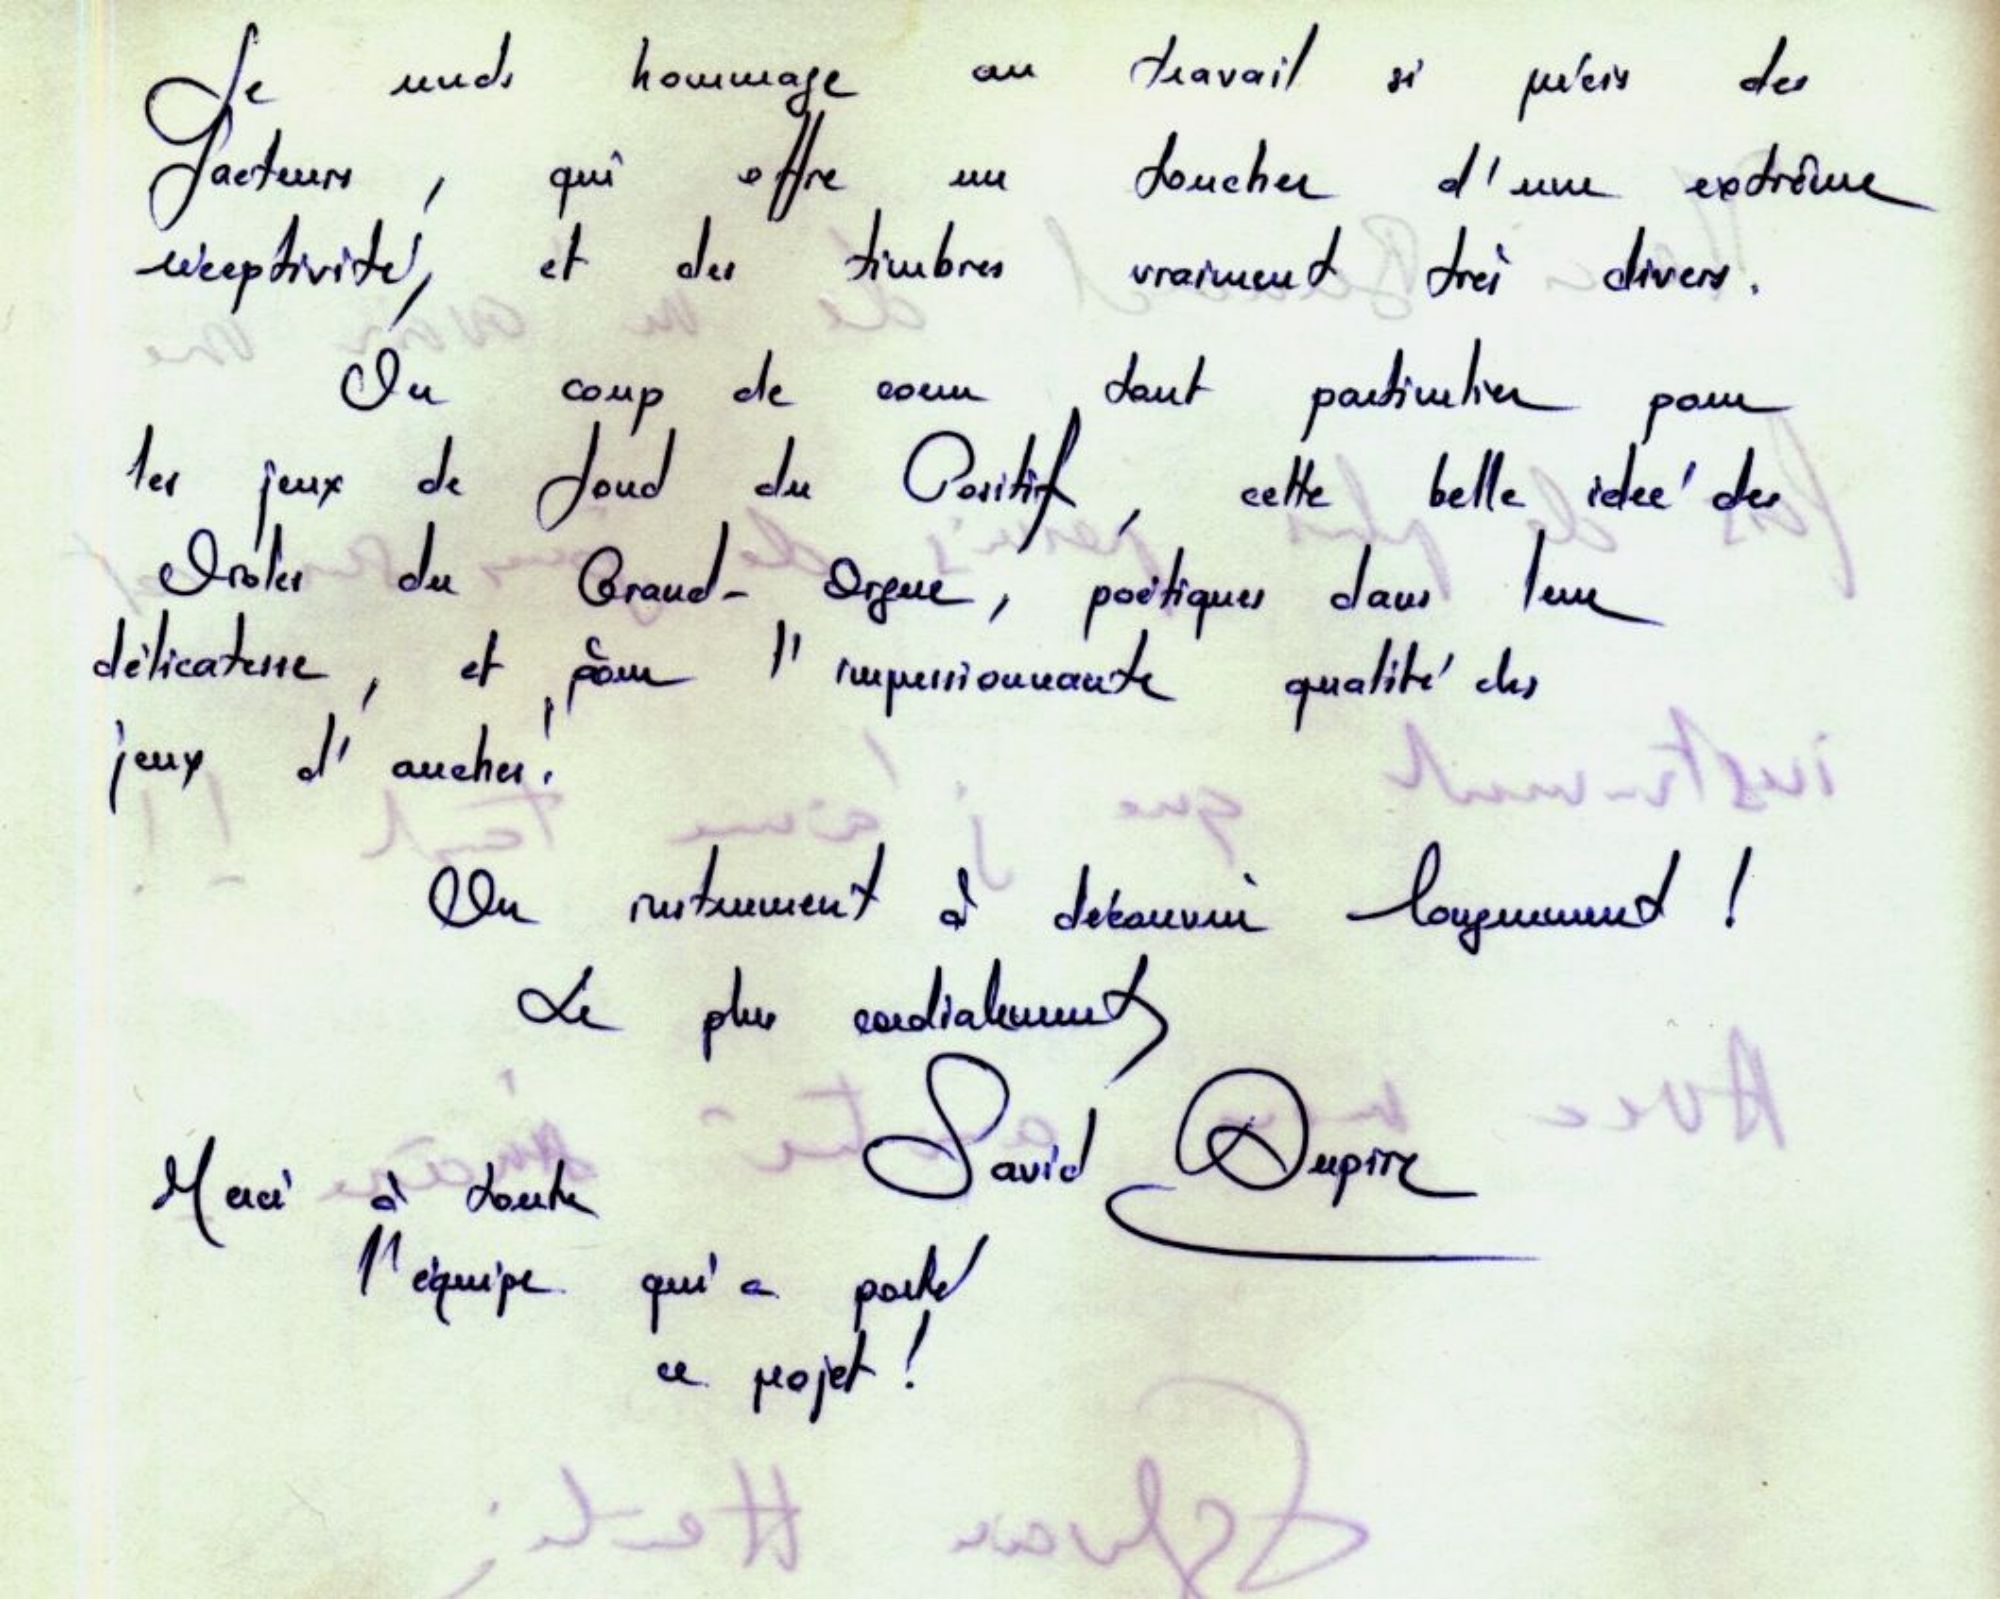 Je rends hommage au travail si précis des
facteurs, qui offre un toucher d'une extrême
réceptivité, et des timbres vraiment très divers.
Un coup de coeur tout particulier pour
les jeux de fond du Positif, cette belle idée des
Violes du Grand-Orgue, poétiques dans leur
délicatesse, et pour l'impressionnante qualité des
jeux d'anches!
Un instrument à découvrir longuement !
Le plus cordialement,
David Dupire
Merci à toute
l'équipe qui a porté
ce projet !